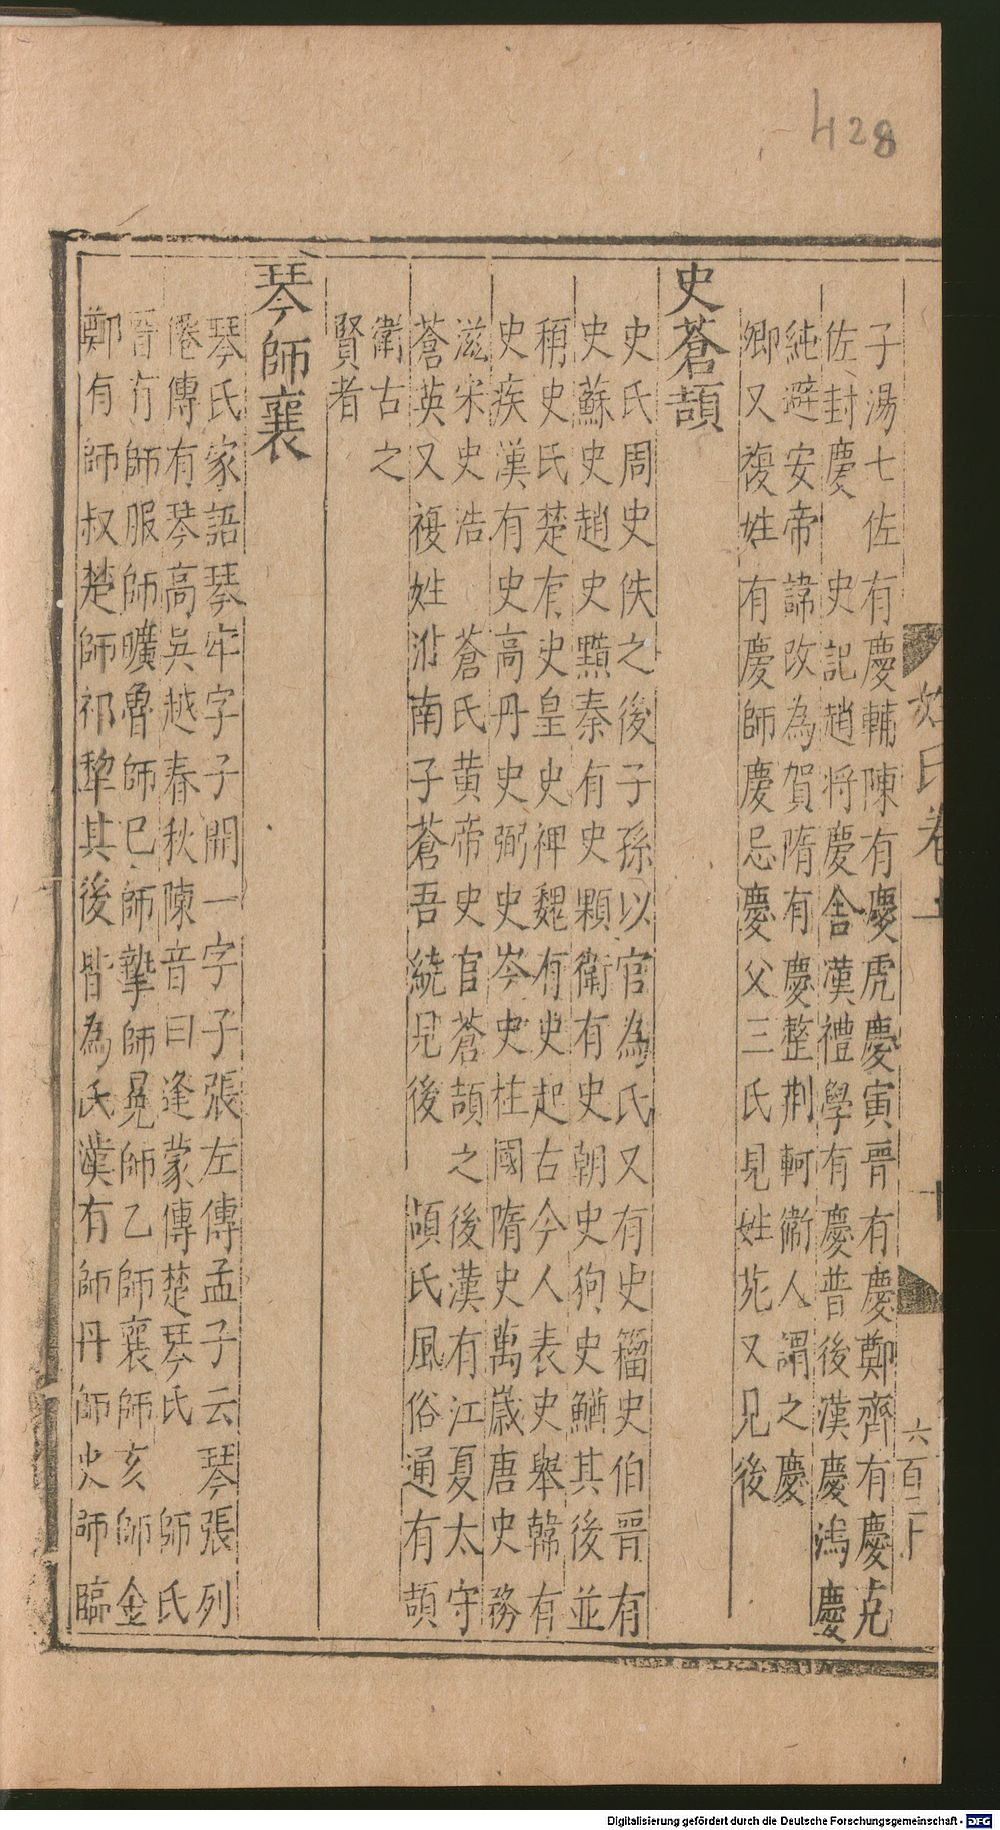 428
子湯七佐有慶輔陳有慶虎慶寅晉有慶鄭齊有慶克
佐封慶 史記趙將慶舍漢禮學有慶普後漢慶鴻慶
純避安帝諱改為賀隋有慶整荆軻衞人謂之慶
卿又復姓有慶師慶忌慶父三氏見姓苑又見後
史蒼頡
史氏周史佚之後子孫以官為氏又有史籀史伯晉有
史蘇史趙史黯秦有史顆衛有史朝史狗史鰌其後並
稱史氏楚有史皇史裨魏有史起古今人表史舉韓有
史疾漢有史高丹史弼史岑史柱國隋史萬歲唐史務
滋宋史浩 蒼氏黄帝史官蒼頡之後漢有江夏太守
蒼英又複姓淮南子蒼吾繞見後 頡氏風俗通有頡
衛古之
賢者
琴師襄
琴氏家語琴牢字子開一字子張左傳孟子云琴張列
僊傳有琴高吳越春秋陳音曰逢蒙傳楚琴氏 師氏
晉有師服師曠魯師巳師摯師冕師乙師襄師亥師金
鄭有師叔楚師祁犂其後皆為氏漢有師丹師史師臨
姓氏卷上
十
六百二十
Digitalisierung gefördert durch die Deutsche Forschungsgemeinschaft - DFG